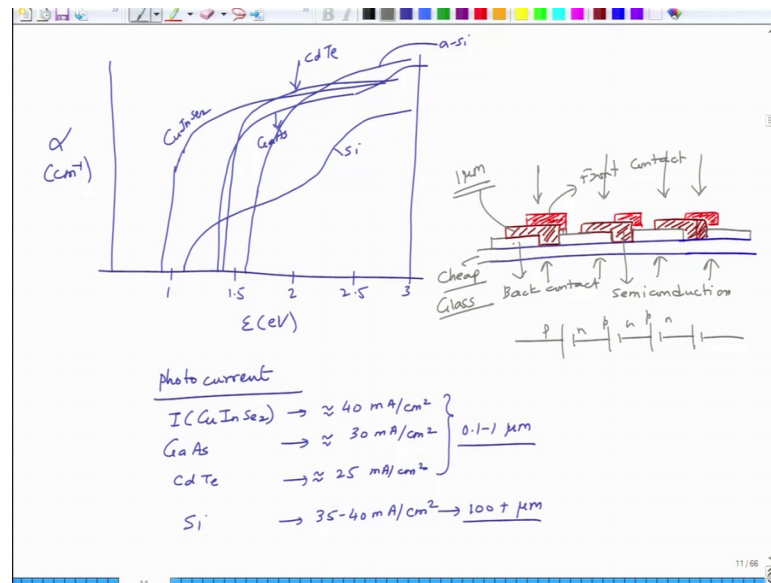 CdTe
a-si
CuInSe2
GaAs
Si
α
(cm⁻¹)
1 1.5 2 2.5 3
ε(eV)
1μm
Front contact
Cheap
Glass
Back contact
Semiconduction
p n p n p n
photo current
I(CuInSe2) → ≈ 40 mA/cm²
GaAs → ≈ 30 mA/cm²
0.1-1 μm
CdTe → ≈ 25 mA/cm²
Si → 35-40 mA/cm² → 100+ μm
11 / 66